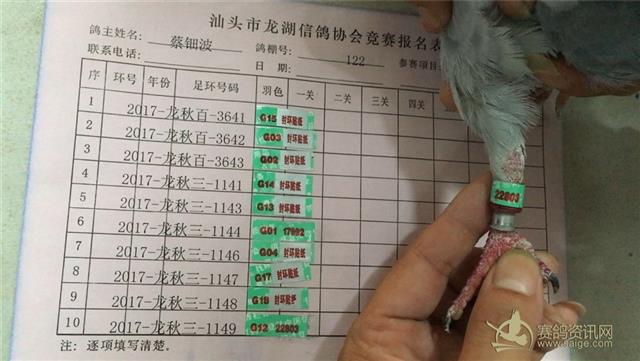 汕头市龙湖信鸽协会竞赛报名表
鸽主姓名: 蔡钿波 鸽棚号: 122
联系电话: 日 期: 参赛项目
序 环号 年份 足环号码 羽色 一关 二关 三关 四关
1 2017-龙秋百-3641 G15 封环贴纸
2 2017-龙秋百-3642 G03 封环贴纸
3 2017-龙秋百-3643 G02 封环贴纸
4 2017-龙秋三-1141 G14 封环贴纸
5 2017-龙秋三-1143 G13 封环贴纸
6 2017-龙秋三-1144 G01 17992
7 2017-龙秋三-1146 G04 封环贴纸
8 2017-龙秋三-1147 G17 封环贴纸
9 2017-龙秋三-1148 G18 封环贴纸
10 2017-龙秋三-1149 G12 22803
注: 逐项填写清楚。
22803
赛鸽资讯网
www.saige.com